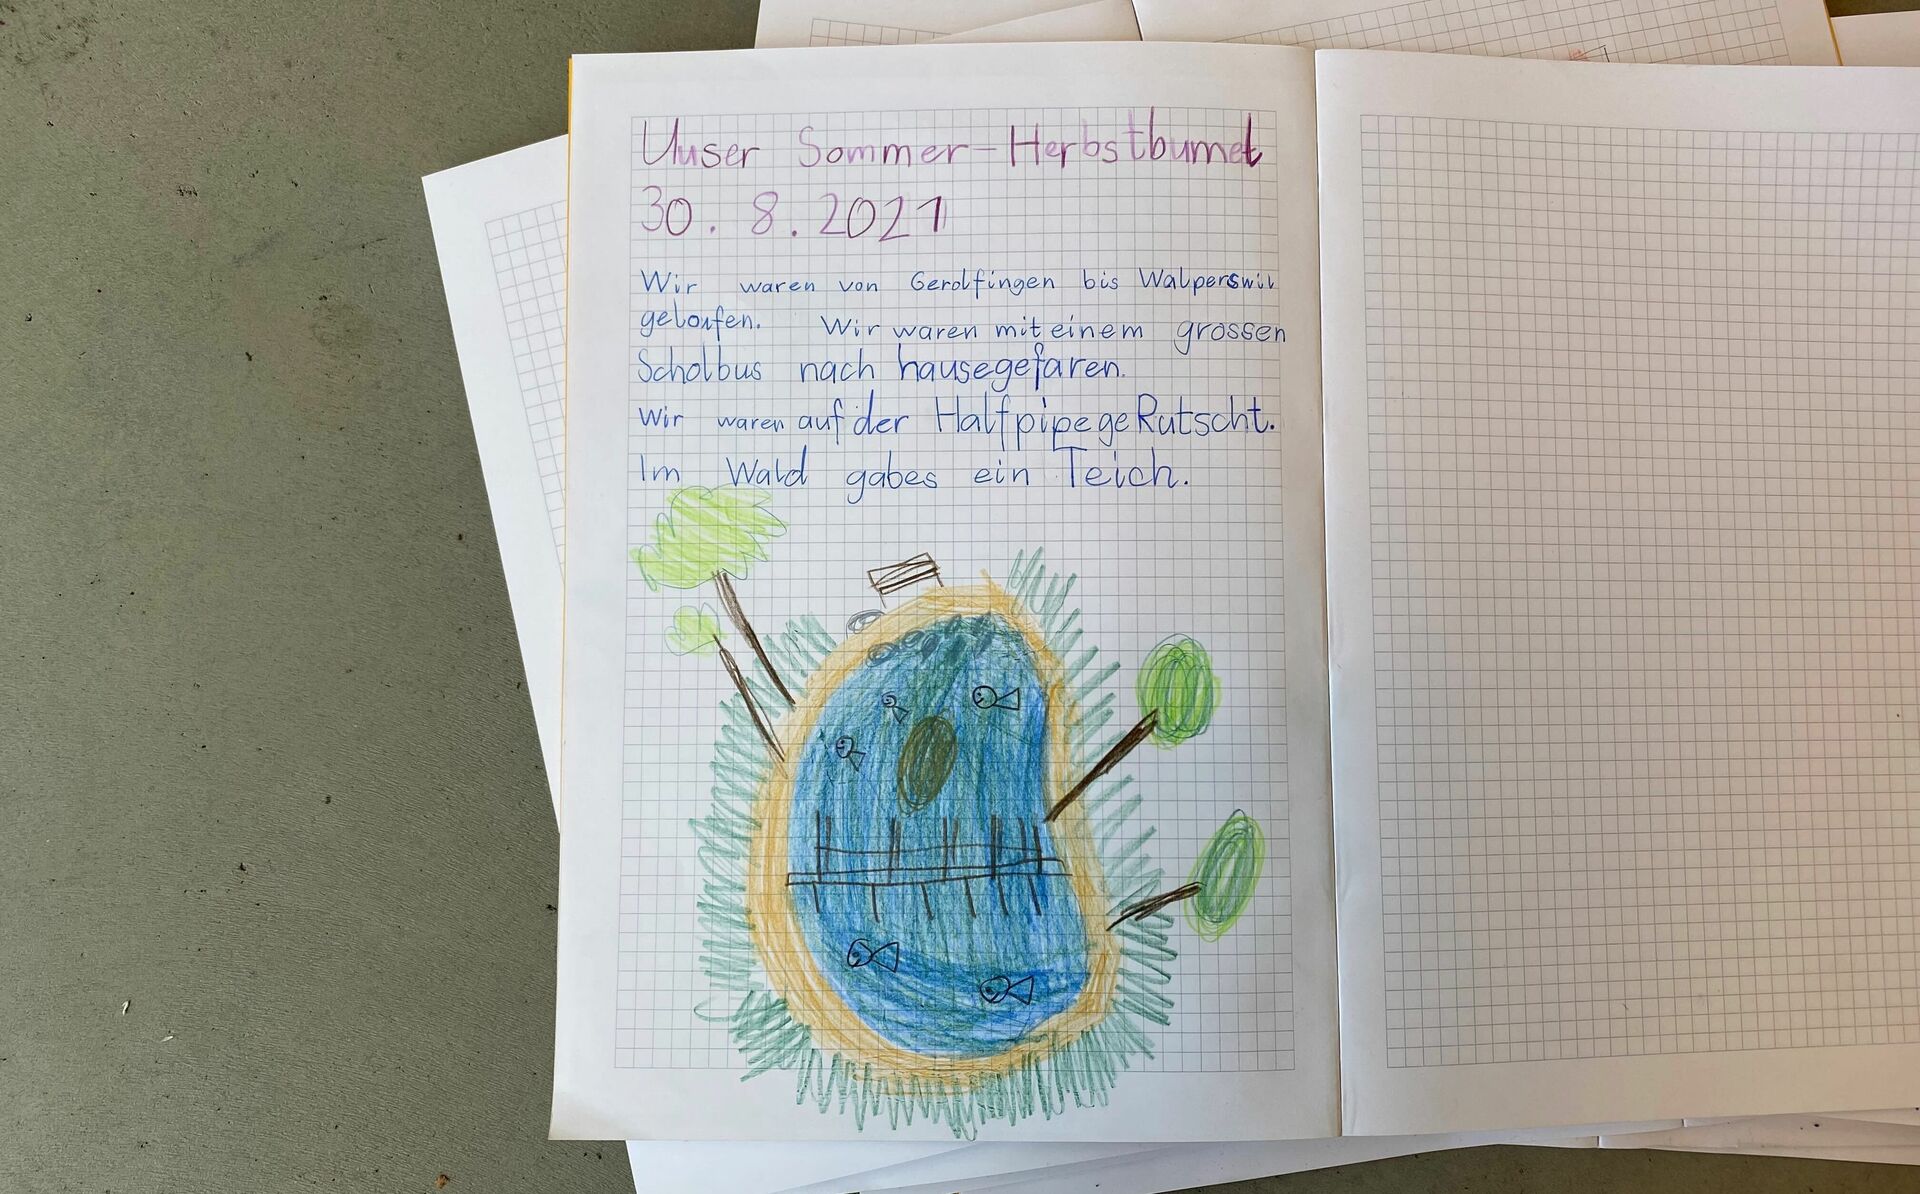 Unser Sommer-Herbstbumel
30. 8. 2021
Wir waren von Gerolfingen bis Walperswil
geloufen. Wir waren mit einem grossen
Scholbus nach hausegefaren.
Wir waren auf der Halfpipe geRutscht.
Im Wald gabes ein Teich.